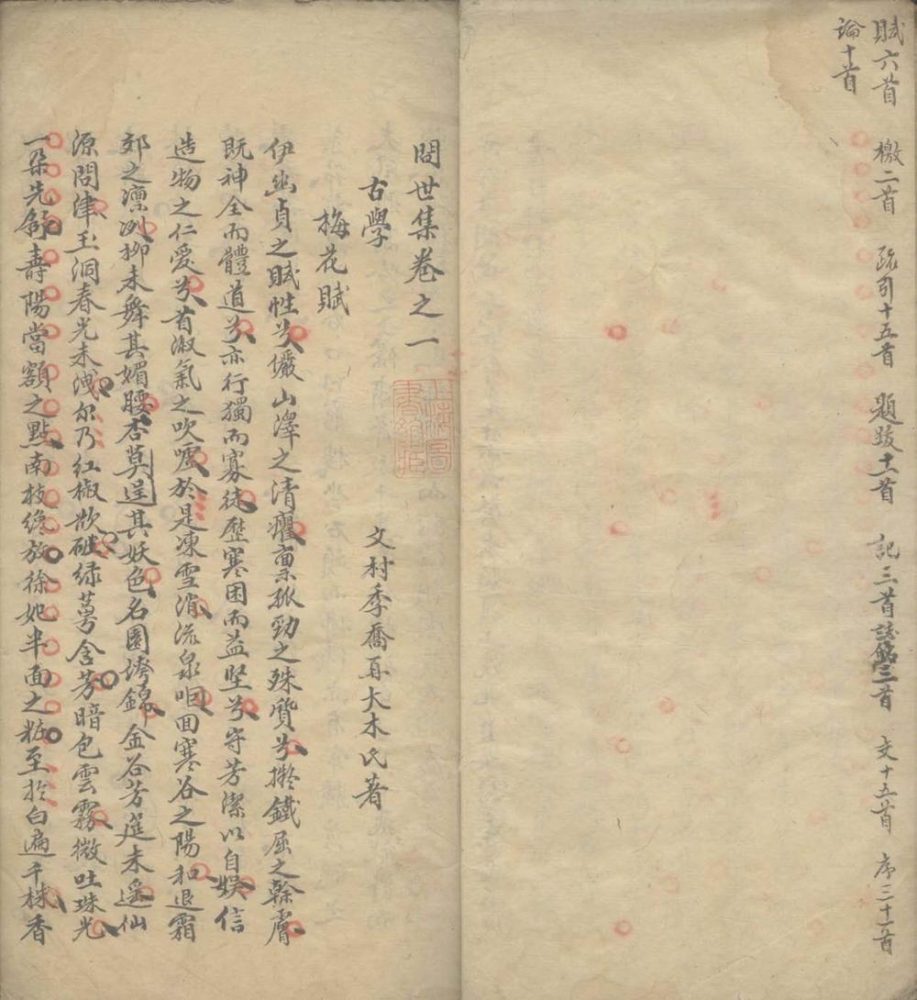 賦六首 檄二首 疏引十五首 題跋十一首 記三首 銘三首 文十五首 序三十一首
論十首
問世集卷之一
古學 文村季喬亙大木氏著
梅花賦
伊幽貞之賦性兮儼山澤之清癯稟孤勁之殊質兮擬鐵屈之幹膚
既神全而體道兮亦行獨而寡徒歷寒困而益堅兮守芳潔以自娛信
造物之仁愛兮首淑氣之吹噓於是凍雪消流泉咽回寒谷之陽和退霜
郊之凛冽柳未舞其媚腰杏莫逞其妖色名園繡錦金谷芳菲未遥仙
源問津玉洞春光未洩尔乃紅椒欲破緑萼含芳暗包雲霧微吐珠光
一朶先舒壽陽當額之點南枝纔放徐妃半面之粧至於白遍千株香